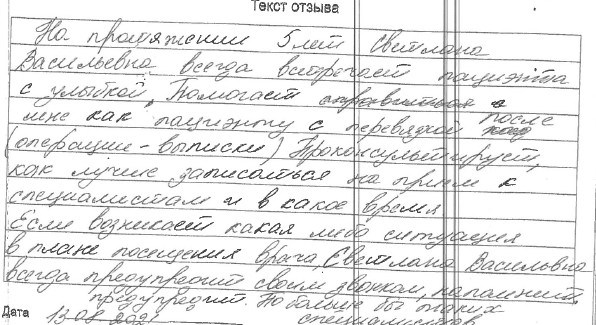 Текст отзыва
На протяжении 5 лет Светлана
Васильевна всегда встречает пациента
с улыбкой, Помогает справиться
после
мне как пациэнту с перевязкой
(операции - выписки) Проконсультирует,
как лучше записаться на прием к
специалистам и в какое время
Если возникает какая либо ситуация
в плане посещения врача, Светлана Васильевна
всегда предупредит своим звонком, напомнит,
предупредит. Побольше бы таких
Дата
специалистов